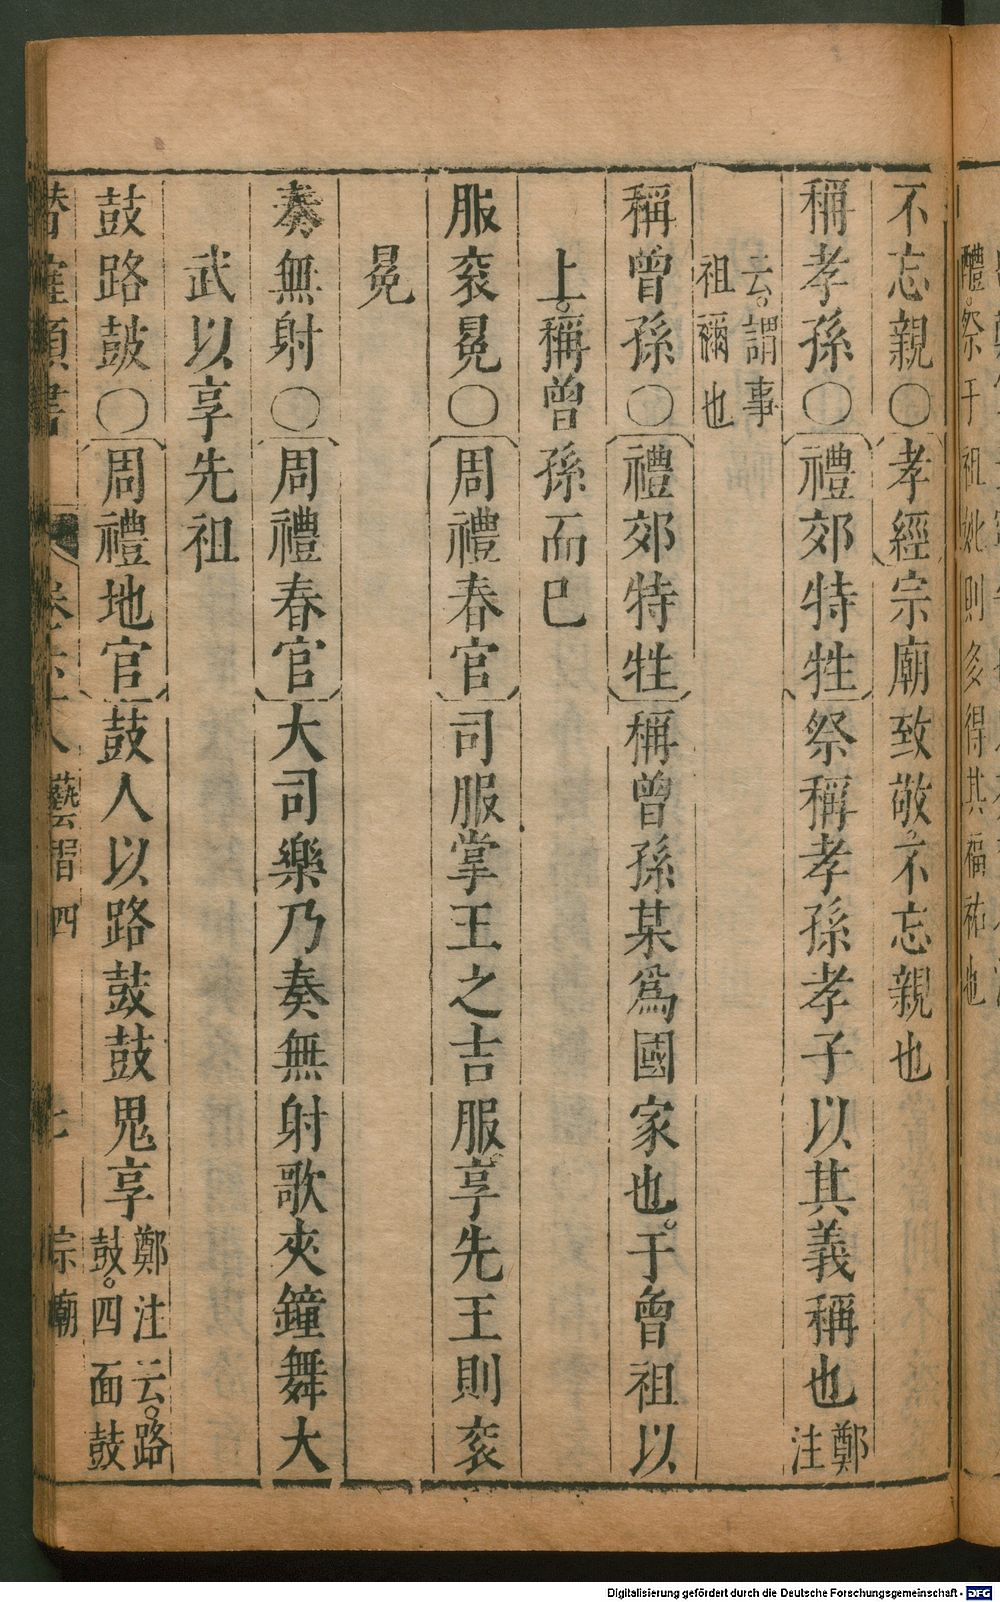 不忘親〇孝經宗廟致敬不忘親也
稱孝孫〇禮郊特牲祭稱孝孫孝子以其義稱也鄭注
云。謂事祖禰也
稱曾孫〇禮郊特牲稱曾孫某爲國家也。于曾祖以
上。稱曾孫而已
服衮冕〇周禮春官司服掌王之吉服享先王則衮
冕
奏無射〇周禮春官大司樂乃奏無射歌夾鐘舞大
武以享先祖
鼓路鼓〇周禮地官鼓人以路鼓鼓鬼享鄭注云。路鼓。四面鼓
藝習四
宗廟
醴。祭于祖妣則多得其福祐也
Digitalisierung gefördert durch die Deutsche Forschungsgemeinschaft - DFG